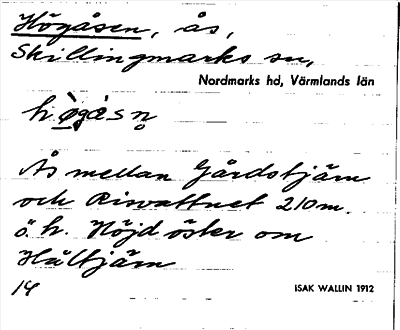 Högåsen, ås,
Skillingmarks sn,
Nordmarks hd, Värmlands län
Ås mellan Gårdstjärn
och Risvattnet 210 m.
ö. h. Höjd öster om
Håltjärn
14
ISAK WALLIN 1912